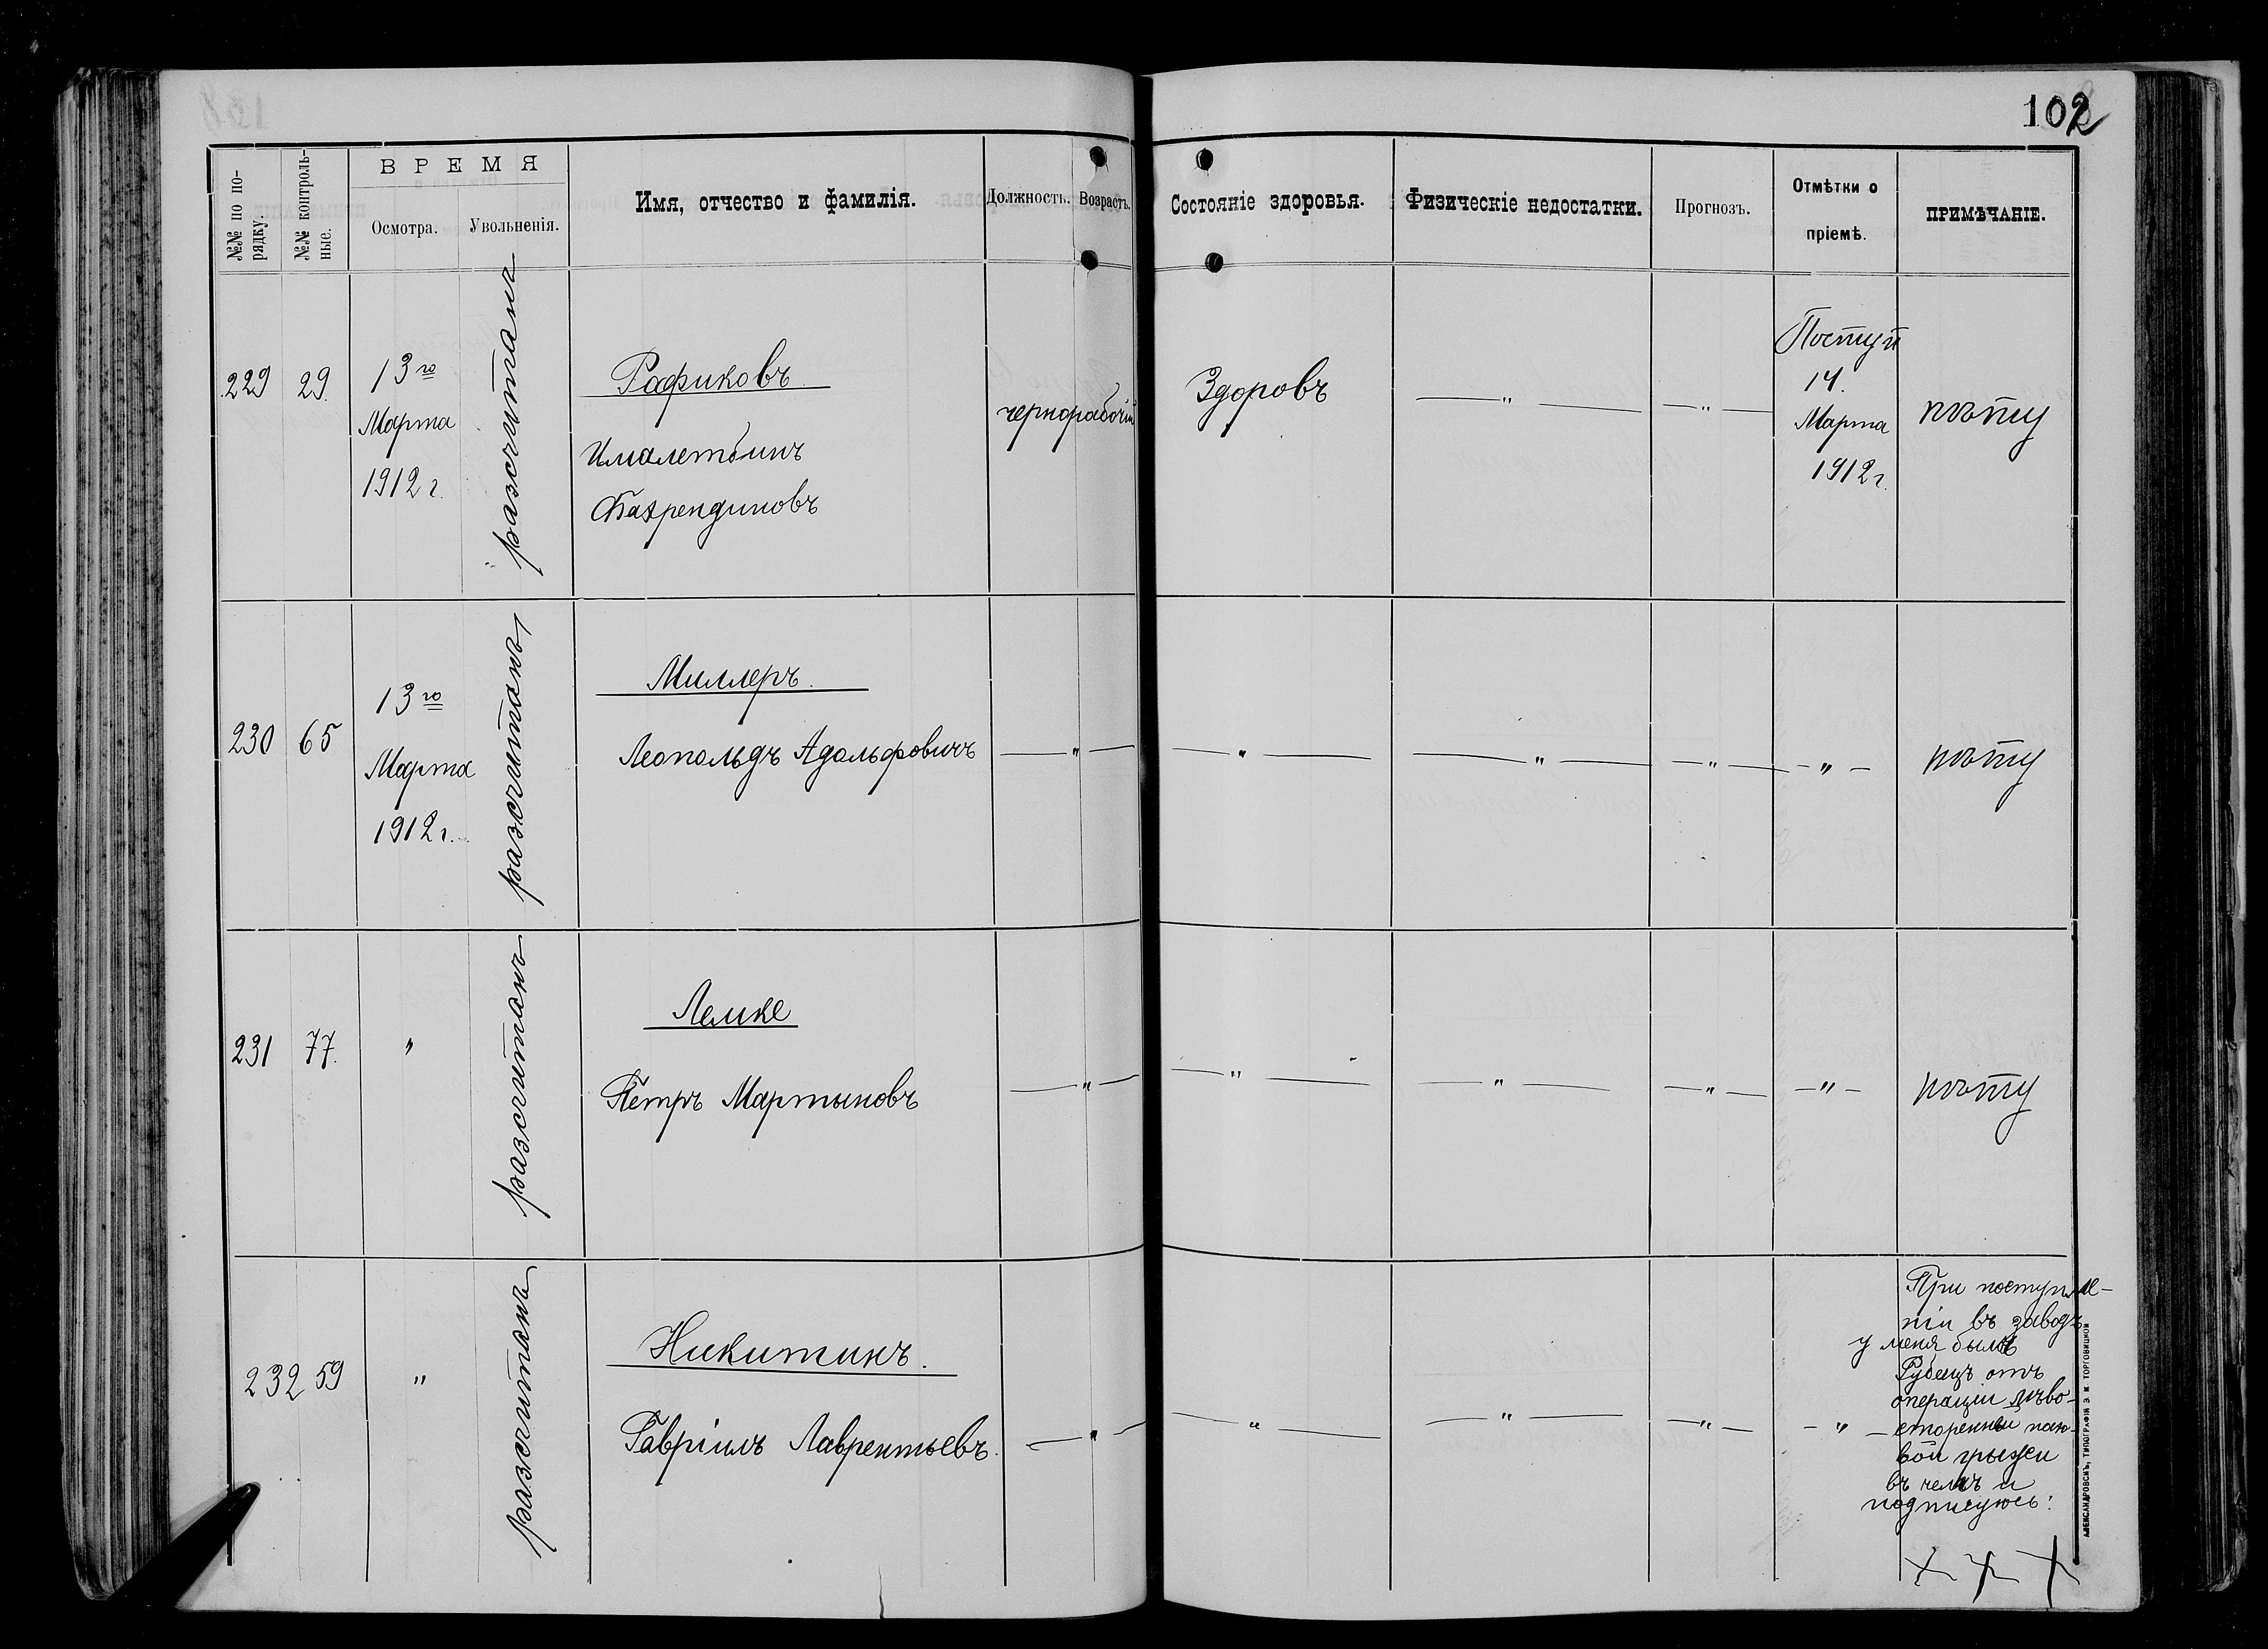 102
№№ по по-
рядку.
№№ контроль-
ные.
ВРЕМЯ
Осмотра.
Увольненія.
Имя, отчество и фамилія.
Должность.
Возрастъ.
Состояніе здоровья.
Физическіе недостатки.
Прогнозъ.
Отмѣтки о
пріемѣ.
ПРИМѢЧАНІЕ.
229
29.
13го
Марта
1912 г.
разсчитанъ
Рафиковъ
Ималетбинъ
чернорабочій
Здоровъ
— " —
— " —
Поступ
14.
Марта
1912 г.
230
65
13го
Марта
1912 г.
разсчитанъ
Миллеръ.
Леопольдъ Адольфовичъ
— " —
— " —
— " —
— " —
— " —
231
77.
"
разсчитанъ
Лемке
Петръ Мартыновъ
— " —
— " —
— " —
— " —
— " —
232
59
"
разсчитанъ
Никитинъ.
Гавріилъ Лаврентьевъ.
— " —
— " —
— " —
— " —
— " —
При поступле-
ніи въ заводъ
у меня былъ
Рубецъ отъ
операціи лѣво-
сторонней пахо-
вой грыжи
въ чемъ и
подписуюсь:
+ + +
АЛЕКСАНДРОВСКЪ, ТИПОГРАФІЯ Э. И. ТОРГОВИЦКОЙ